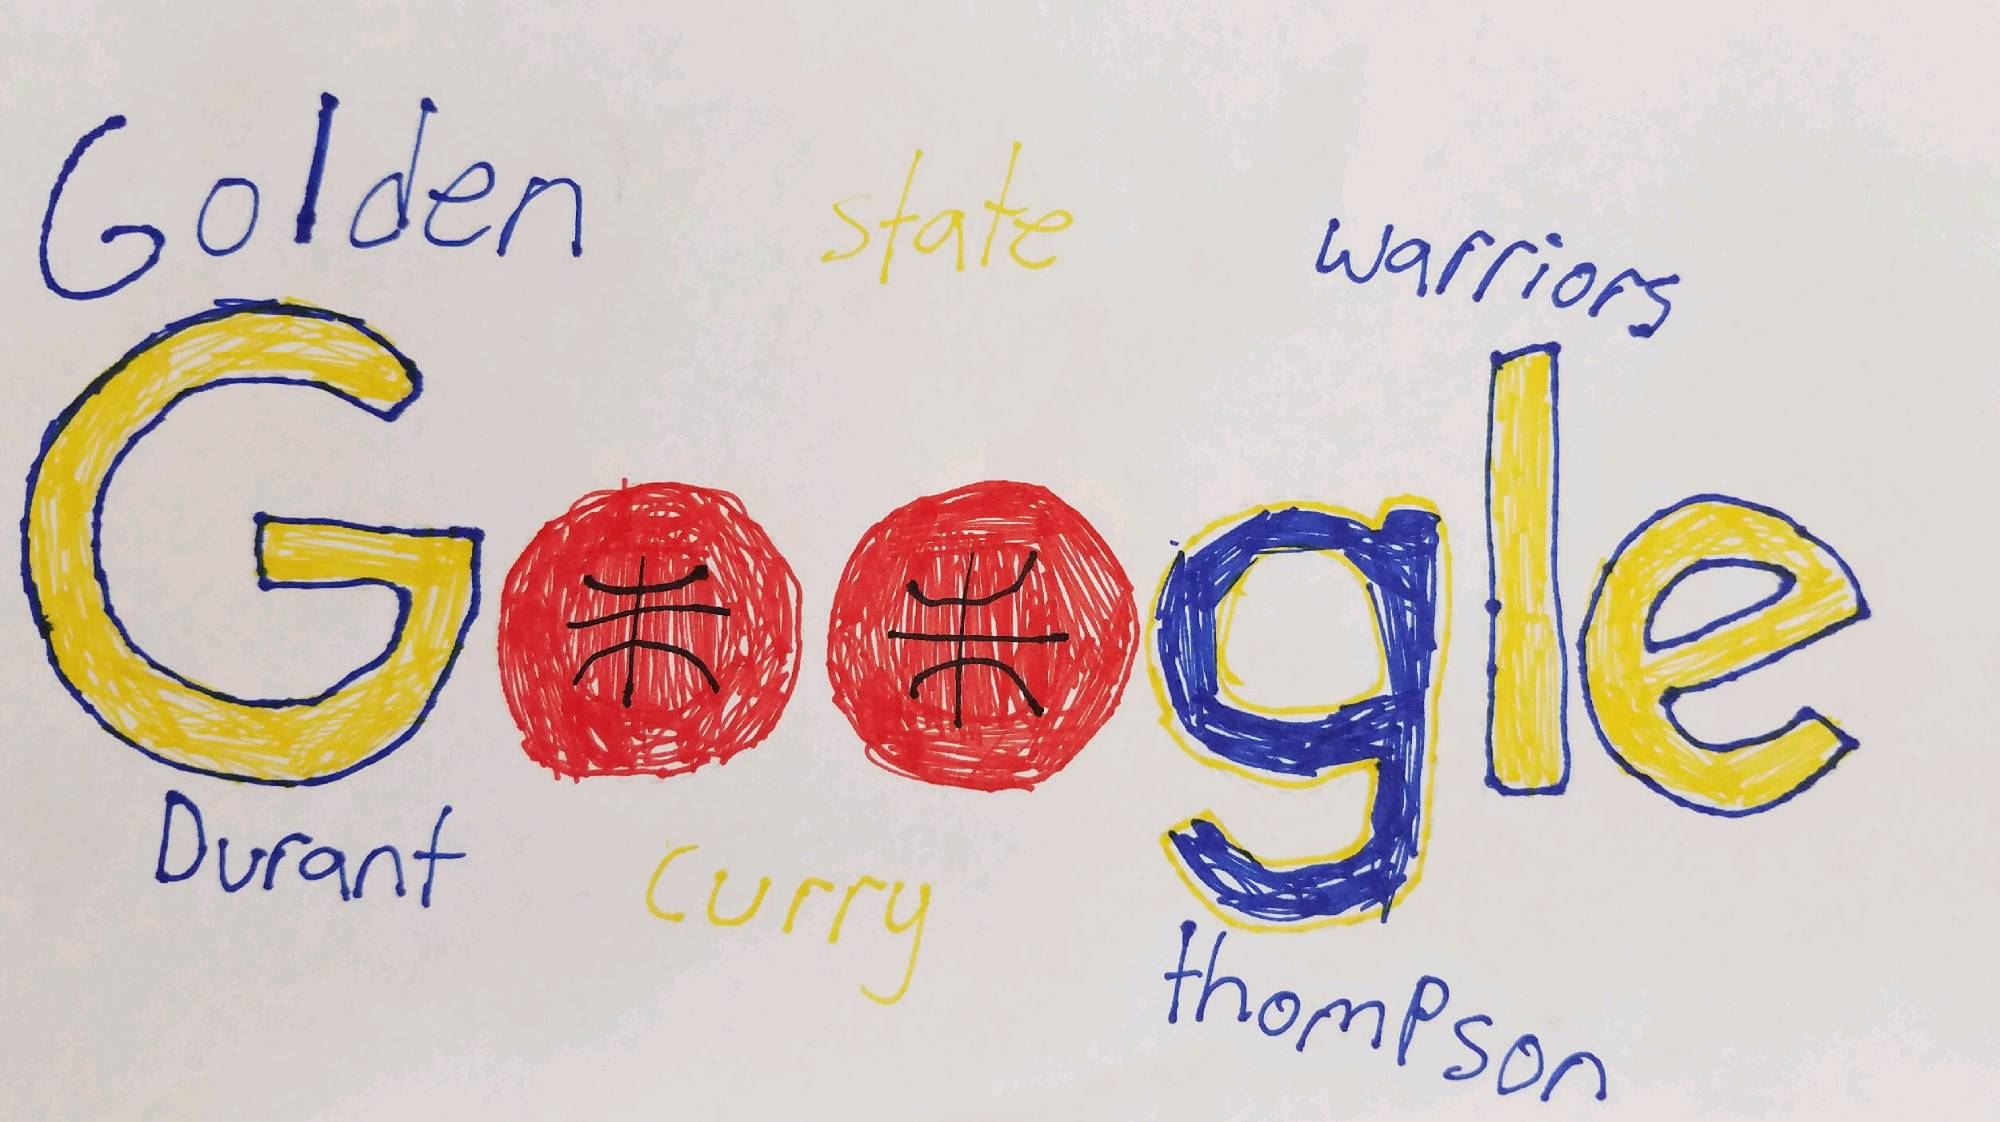 Golden state warriors
Google
Durant curry thompson